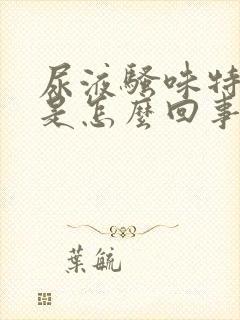 尿液騷味特
是怎麼回事
葉毓